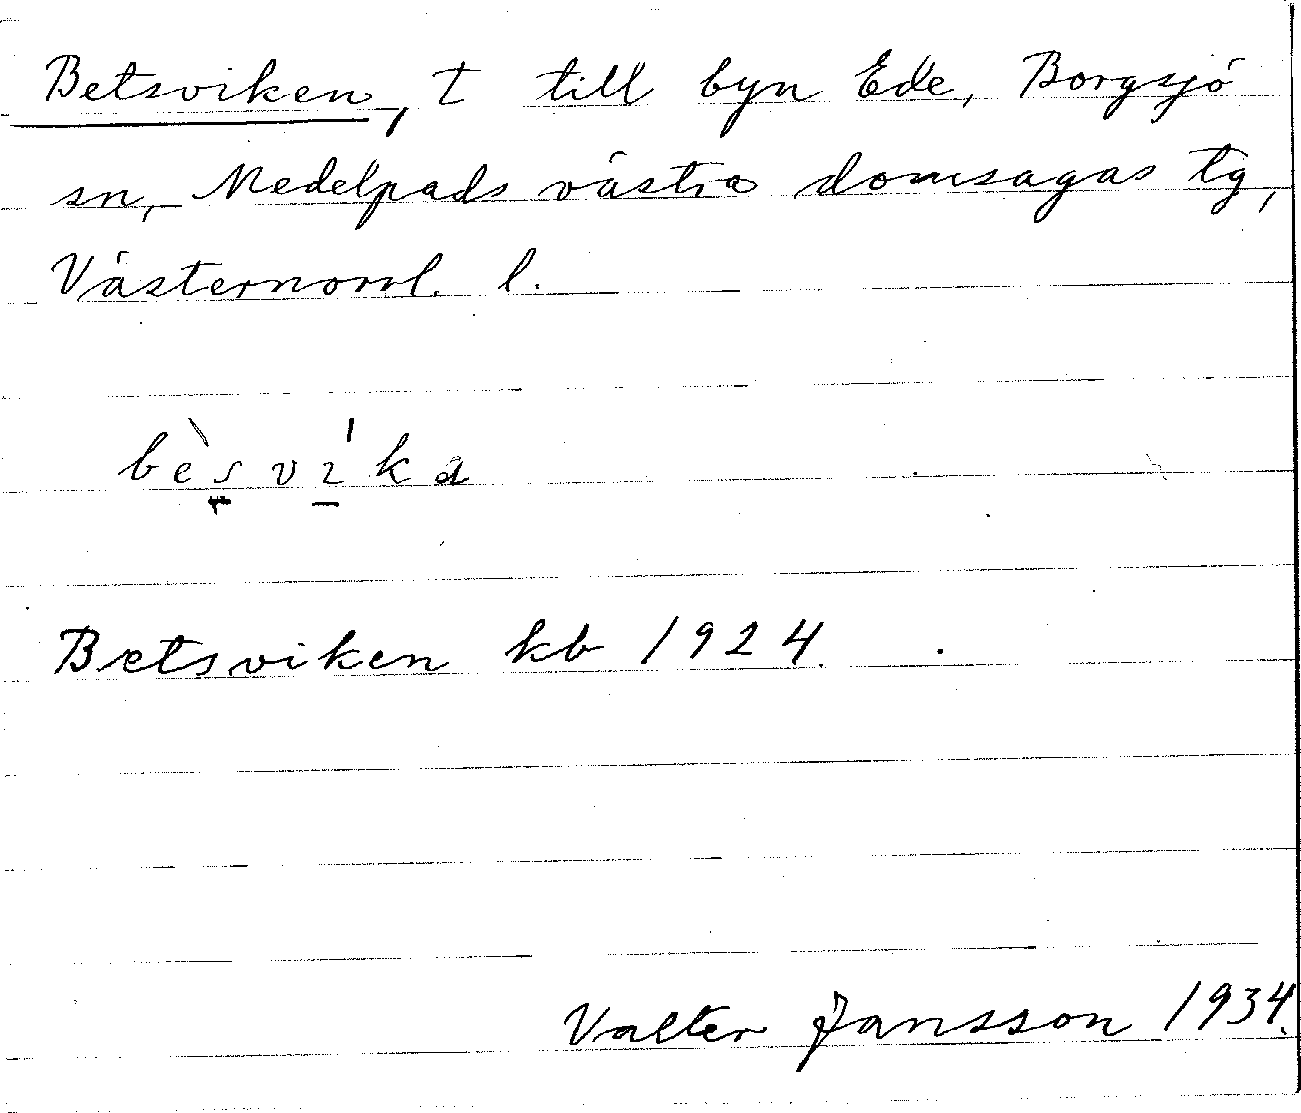 Betsviken, t till byn Ede, Borgsjö
sn, Medelpads västra domsagas tg,
Västernorrl. l.
bèsvíka
Betsviken kb 1924
Valter Jansson 1934.